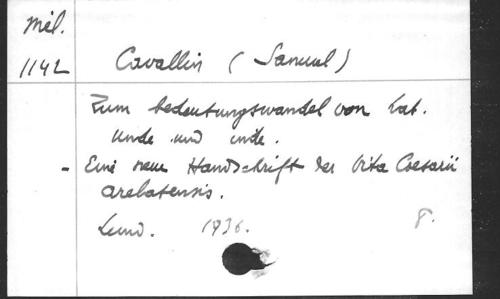 Mél.
1142
Cavallin (Samuel)
Zum bedeutungswandel von Lat.
unde und inde.
- Eine neue Handschrift der Vita Caesarii
arelatensis.
Lund. 1936. 8.